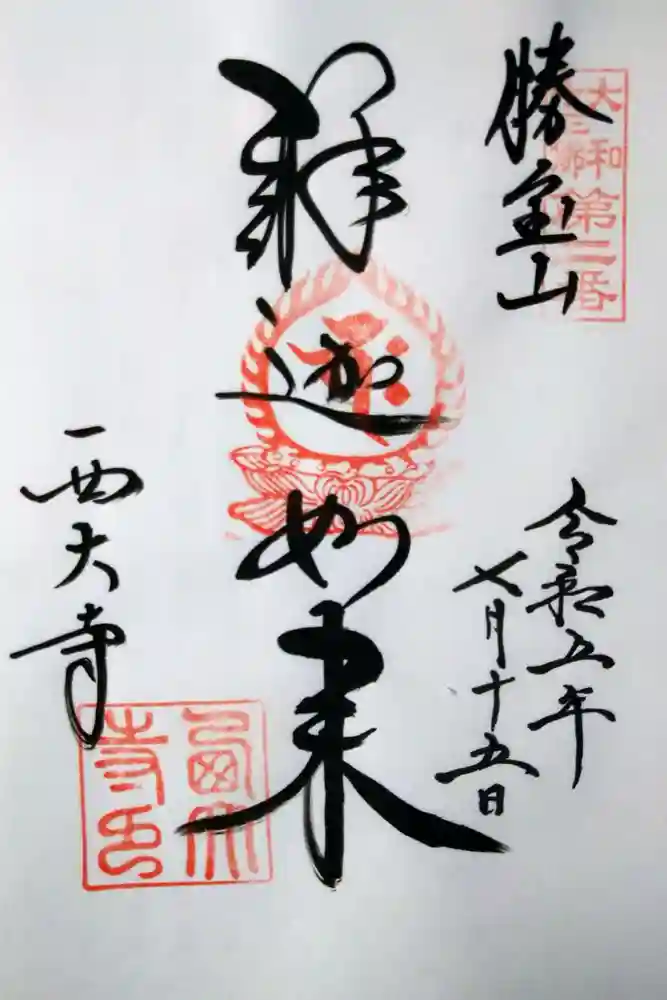 大和
十三佛
第二番
勝宝山
令和五年
七月十五日
釈迦如来
西大寺
西大
寺印